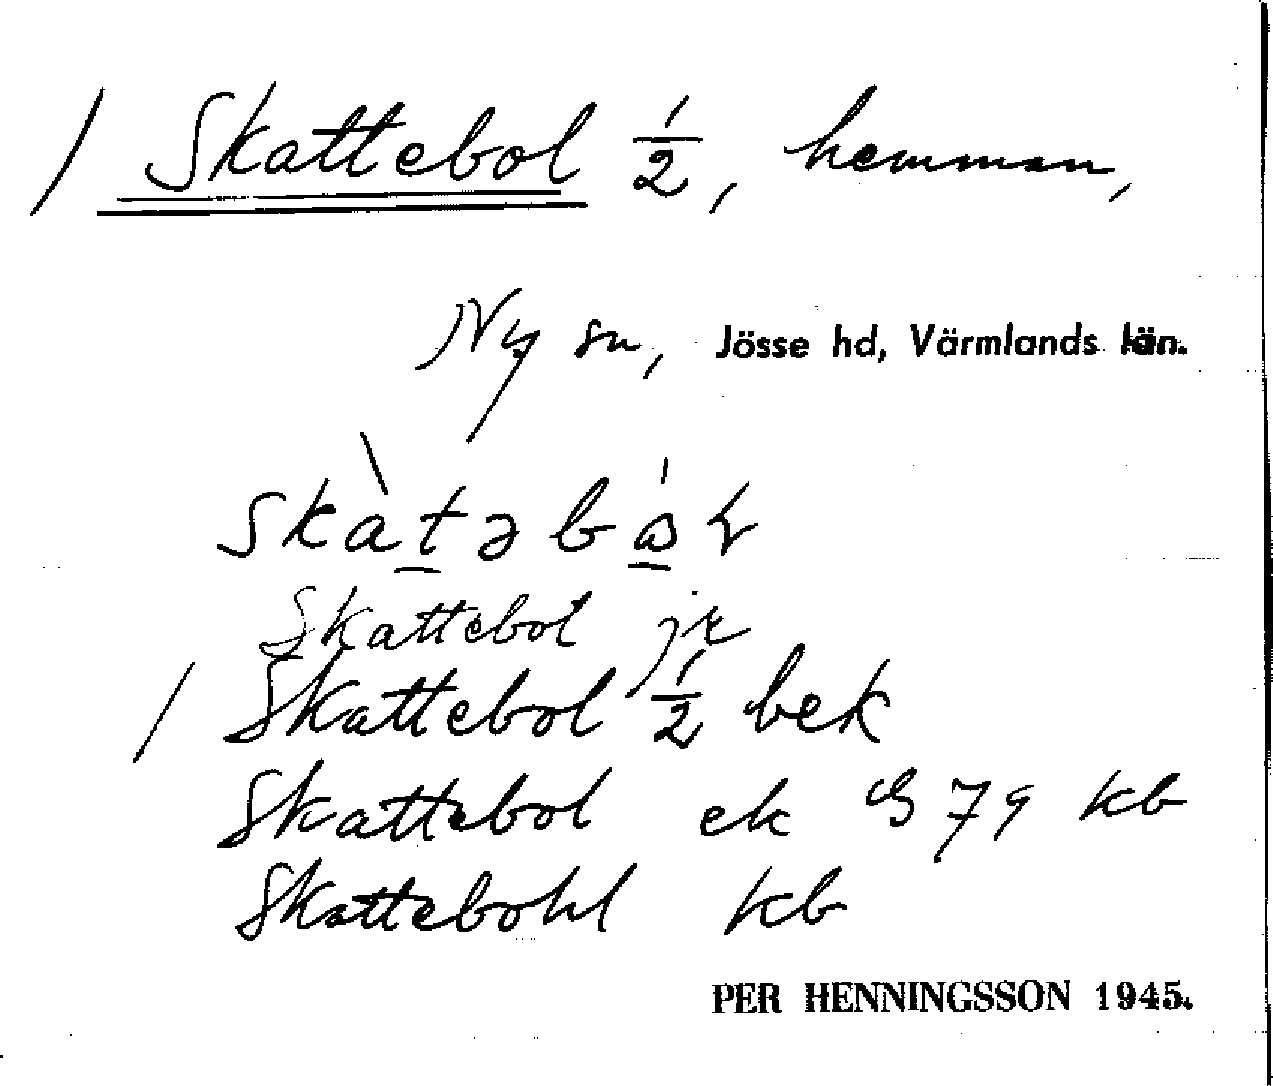 / Skattebol 1/2, hemman,
Ny sn, Jösse hd, Värmlands län.
Skattebol jr
/ Skattebol 1/2 bek
Skattebol ek 79 kb
Skattebohl kb
PER HENNINGSSON 1945.